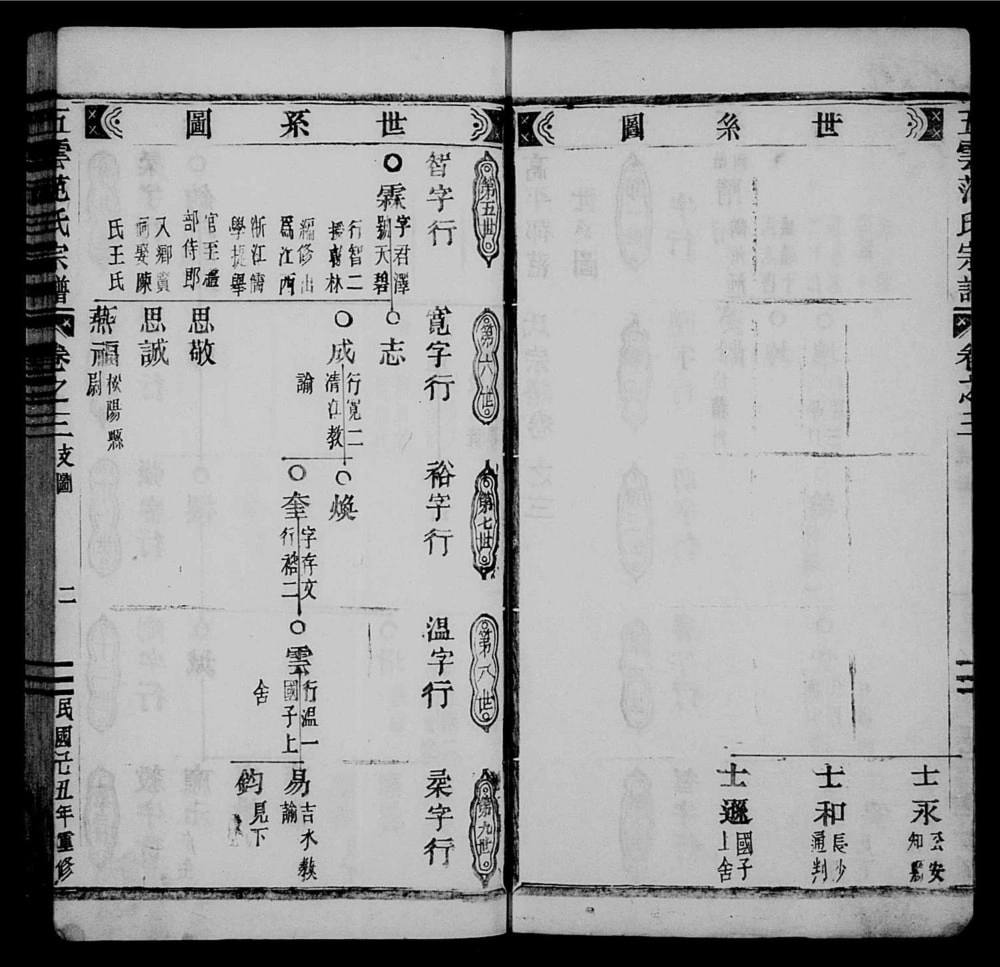 世系圖
五雲范氏宗譜
卷之三
士永
公安
知縣
士和
長沙
通判
士遜
國子
上舍
世系圖
第五世
智字行
霖
字君澤
號天碧
行智二
擢翰林
編修出
為江西
浙江儒
學提舉
官至禮
部侍郎
入鄉賢
祠娶陳
氏王氏
第六世
寬字行
志
成
行寬二
清江教
諭
思敬
思誠
燕福
松陽縣
尉
第七世
裕字行
煥
奎
字存文
行裕二
第八世
温字行
雲
行温一
國子上
舍
第九世
柔字行
易
吉水教
諭
鈞
見下
五雲范氏宗譜
卷之三
支圖
二
民國
丑年重修